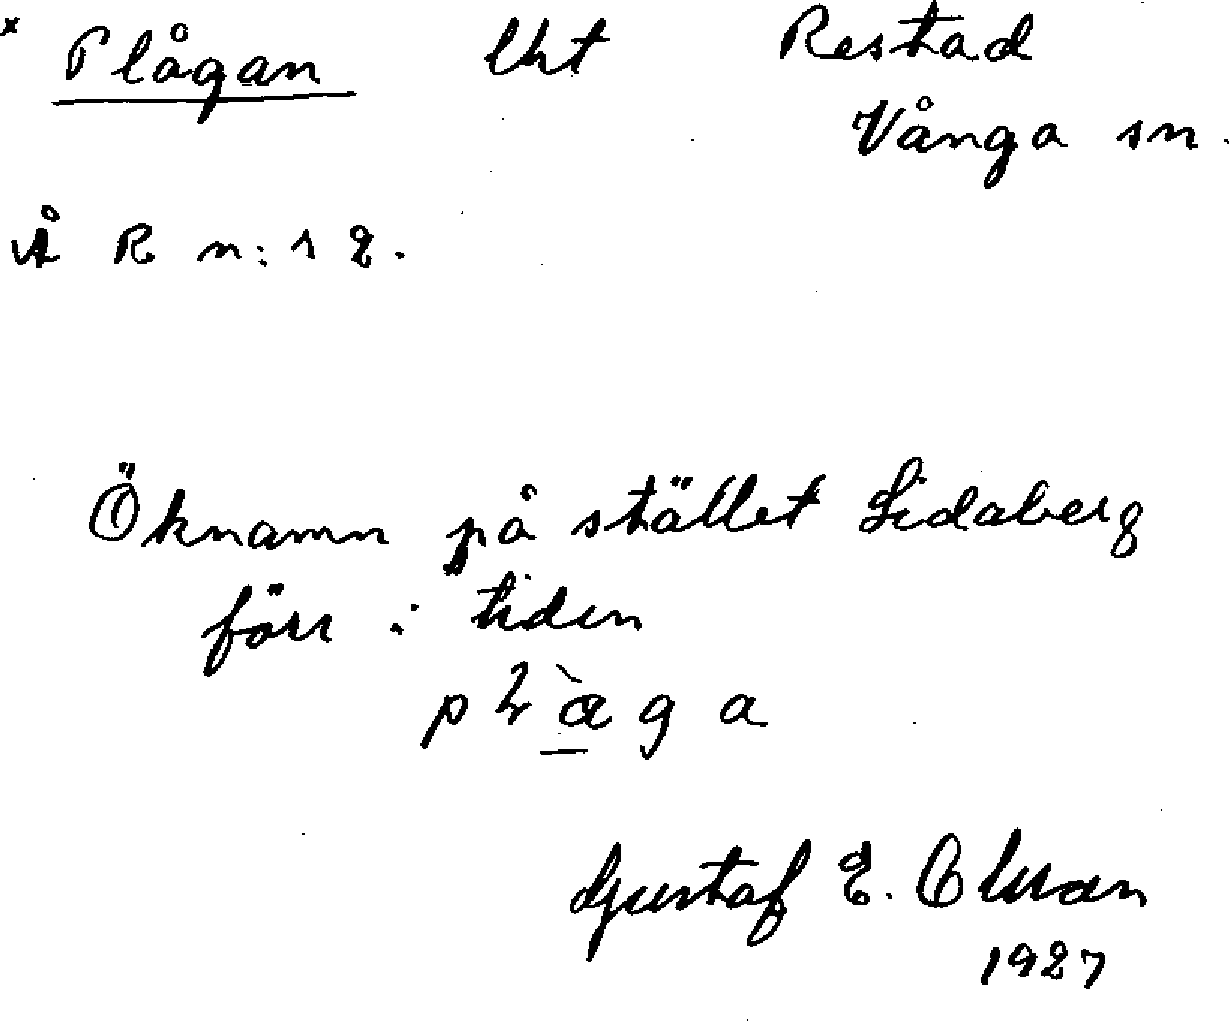 x Plågan lht Restad
Vånga sn.
Å R n:1 2.
Öknamn på stället Lidaberg
förr i tiden
Gustaf E. Olsson
1927